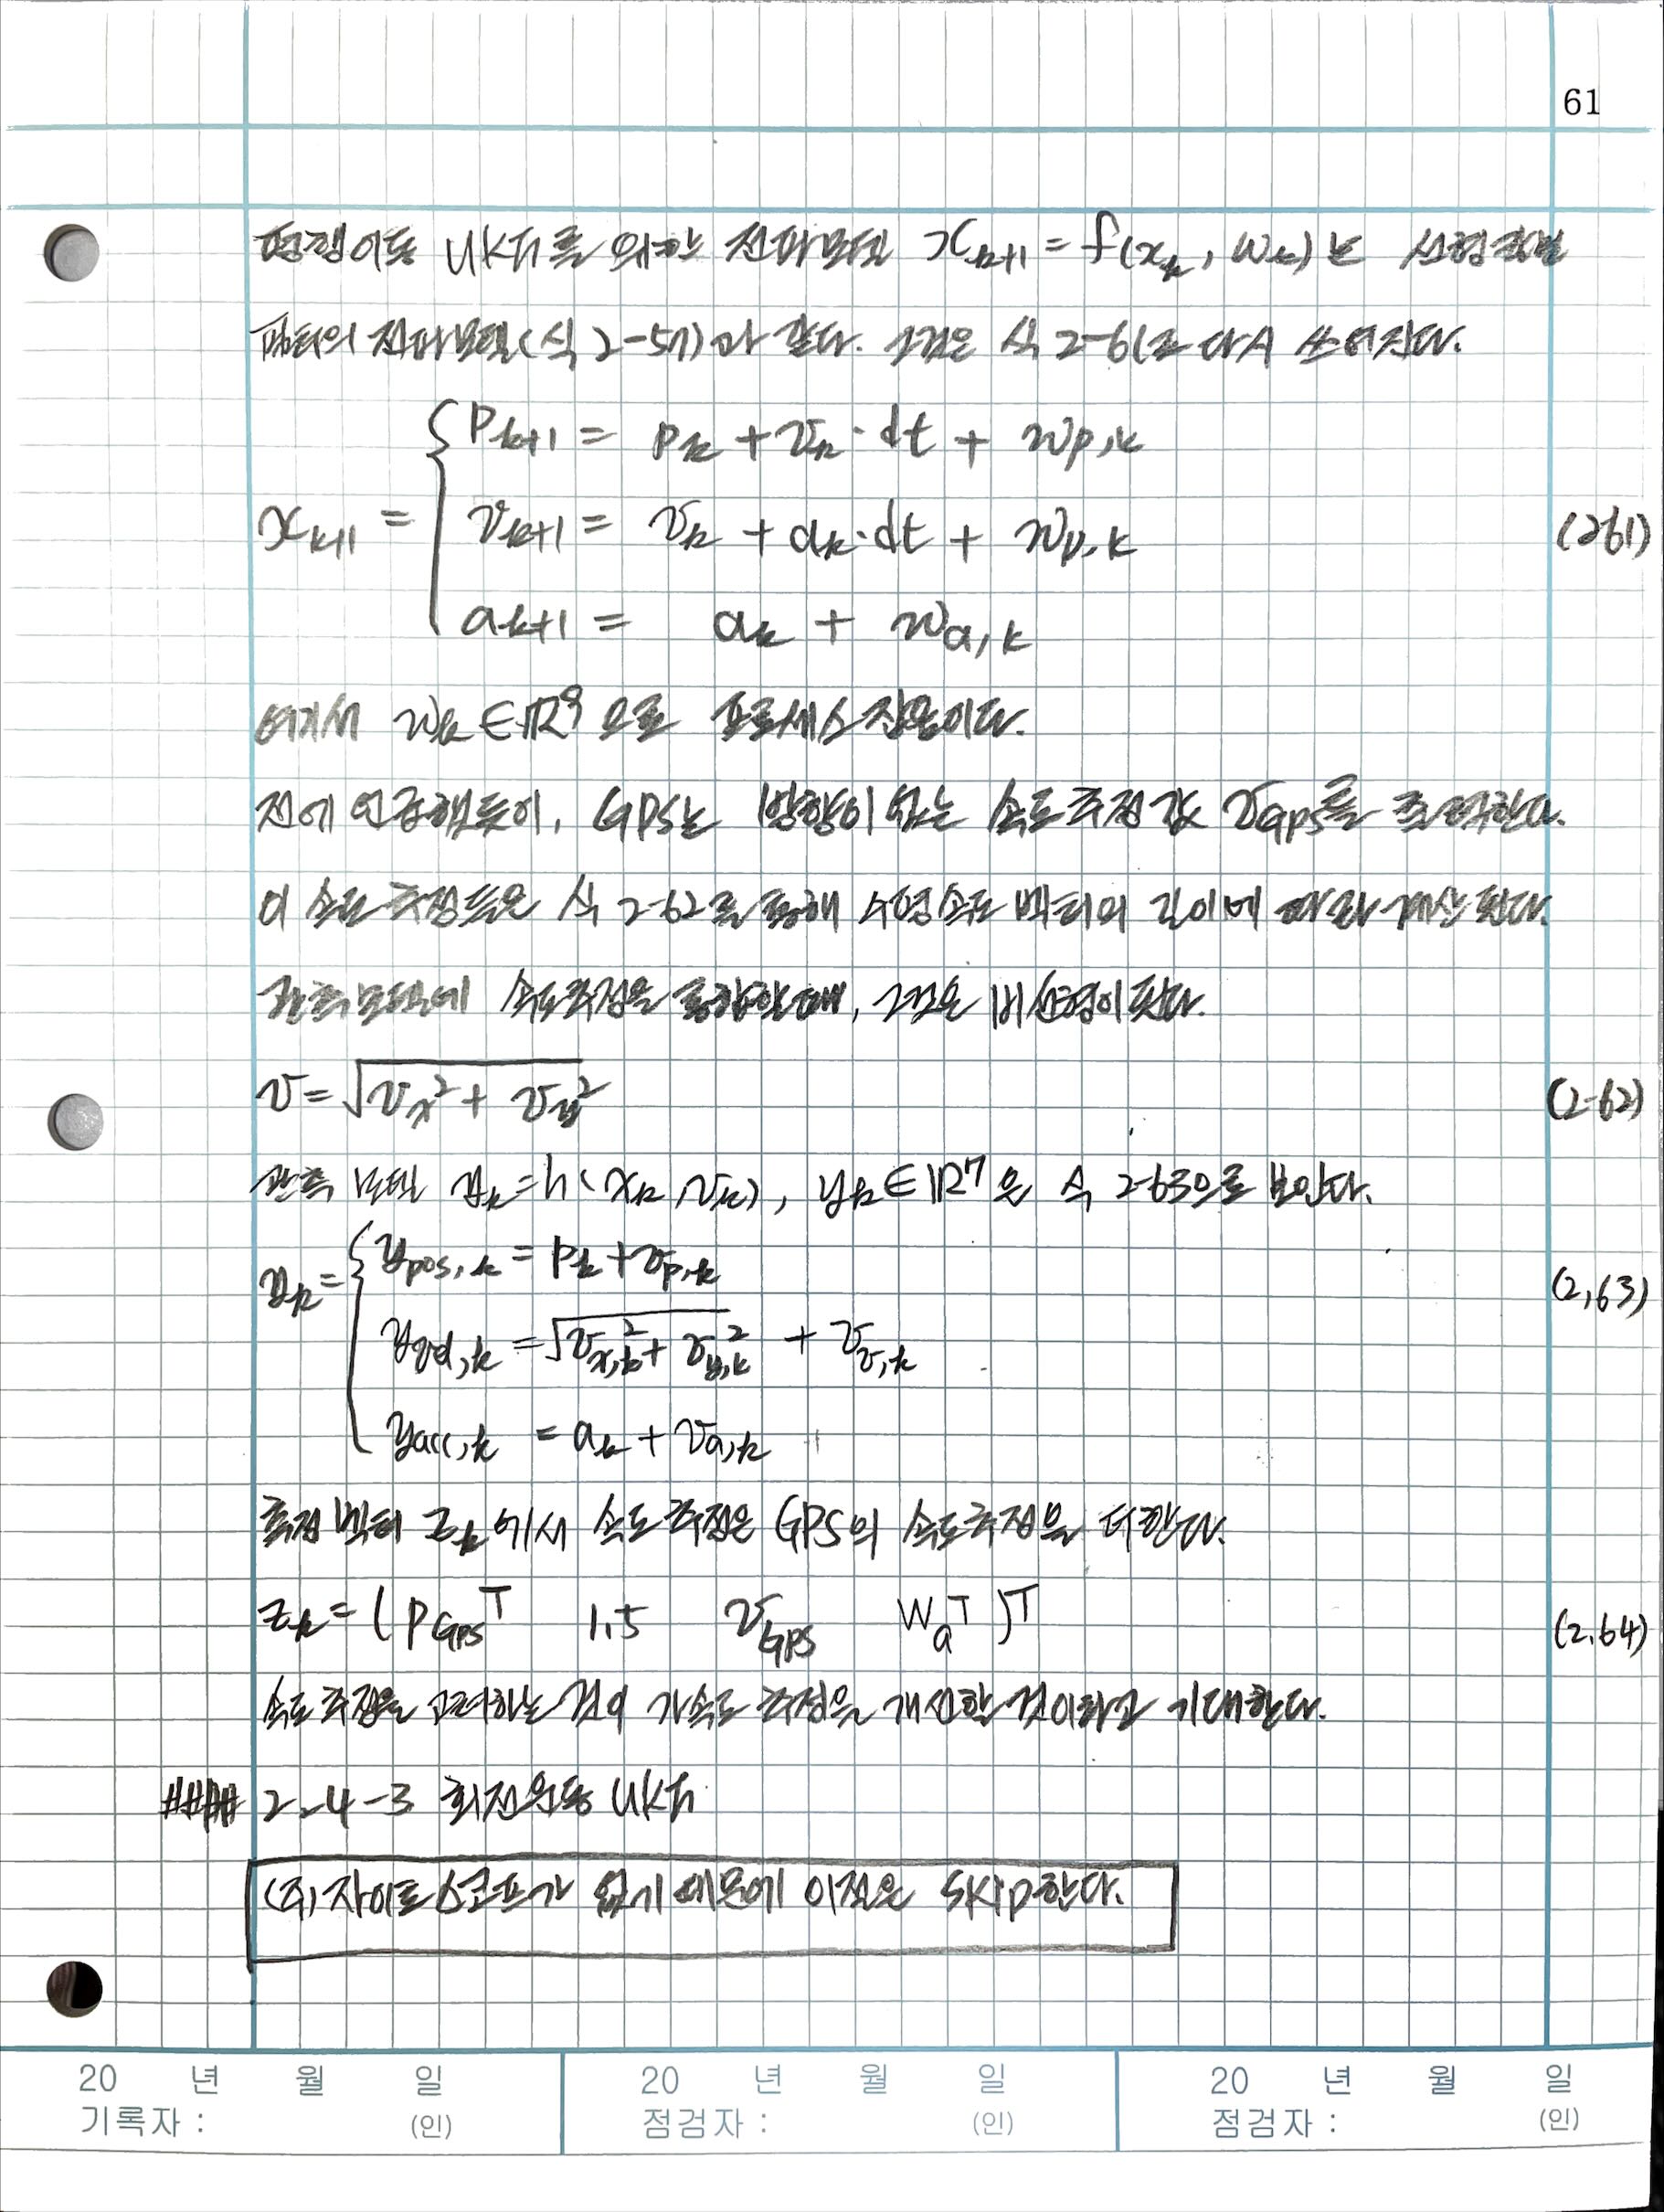 61
평행이동 UKF를 위한 전파모델 x_{k+1} = f(x_k, w_k)는 선형칼만
필터의 전파모델(식 2-57)과 같다. 그것은 식 2-61로 다시 쓰여진다.
x_{k+1} = { p_{k+1} = p_k + v_k · dt + w_{p,k}
v_{k+1} = v_k + a_k · dt + w_{v,k} (261)
a_{k+1} = a_k + w_{a,k}
여기서 w_k ∈ ℝ^9 으로 프로세스 잡음이다.
전에 언급했듯이, GPS는 방향이 없는 속도 추정 값 v_{GPS}를 출력한다.
이 속도 추정들은 식 2-62를 통해 수평속도 벡터의 길이에 따라 계산된다.
관측모델에 속도추정을 통합할때, 그것은 비선형이 된다.
v = √(v_x^2 + v_y^2) (2-62)
관측 모델 y_k = h(x_k, v_k), y_k ∈ ℝ^7 은 식 2-63으로 보인다.
y_k = { y_{pos,k} = p_k + v_{p,k} (2,63)
y_{vel,k} = √(v_{x,k}^2 + v_{y,k}^2) + v_{v,k}
y_{acc,k} = a_k + v_{a,k}
측정 벡터 z_k에서 속도 추정은 GPS의 속도추정을 더한다.
z_k = (p_{GPS}^T 1.5 v_{GPS} W_a^T)^T (2.64)
속도 추정을 고려하는 것이 가속도 추정을 개선할 것이라고 기대한다.
#### 2-4-3 회전운동 UKF
(주) 자이로스코프가 없기 때문에 이절은 SKIP한다.
20 년 월 일 20 년 월 일 20 년 월 일
기록자 : (인) 점검자 : (인) 점검자 : (인)